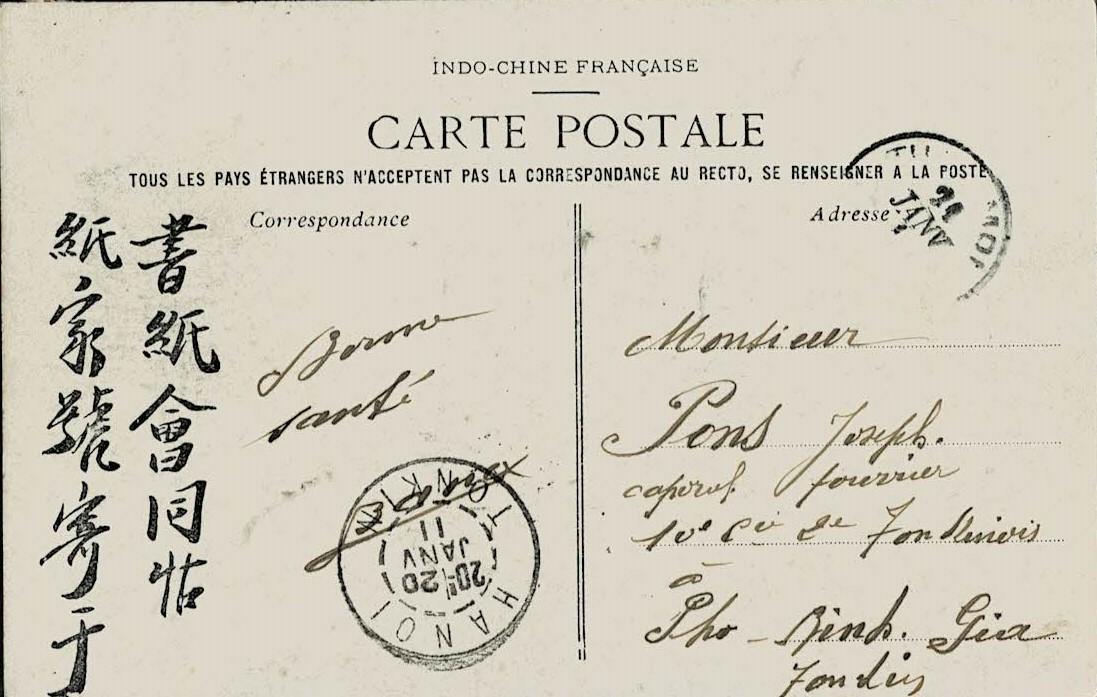 INDO-CHINE FRANÇAISE
CARTE POSTALE
TOUS LES PAYS ÉTRANGERS N'ACCEPTENT PAS LA CORRESPONDANCE AU RECTO, SE RENSEIGNER A LA POSTE
Correspondance
Adresse
21
JANV
書紙會同帖
紙家號寄于
Bonne
santé
HANOI
TONKIN
20
JANV
11
Monsieur
Pons Joseph.
caporal fourrier
10e Cie 2e Tonkinois
à
Pho-Binh. Gia
Tonkin